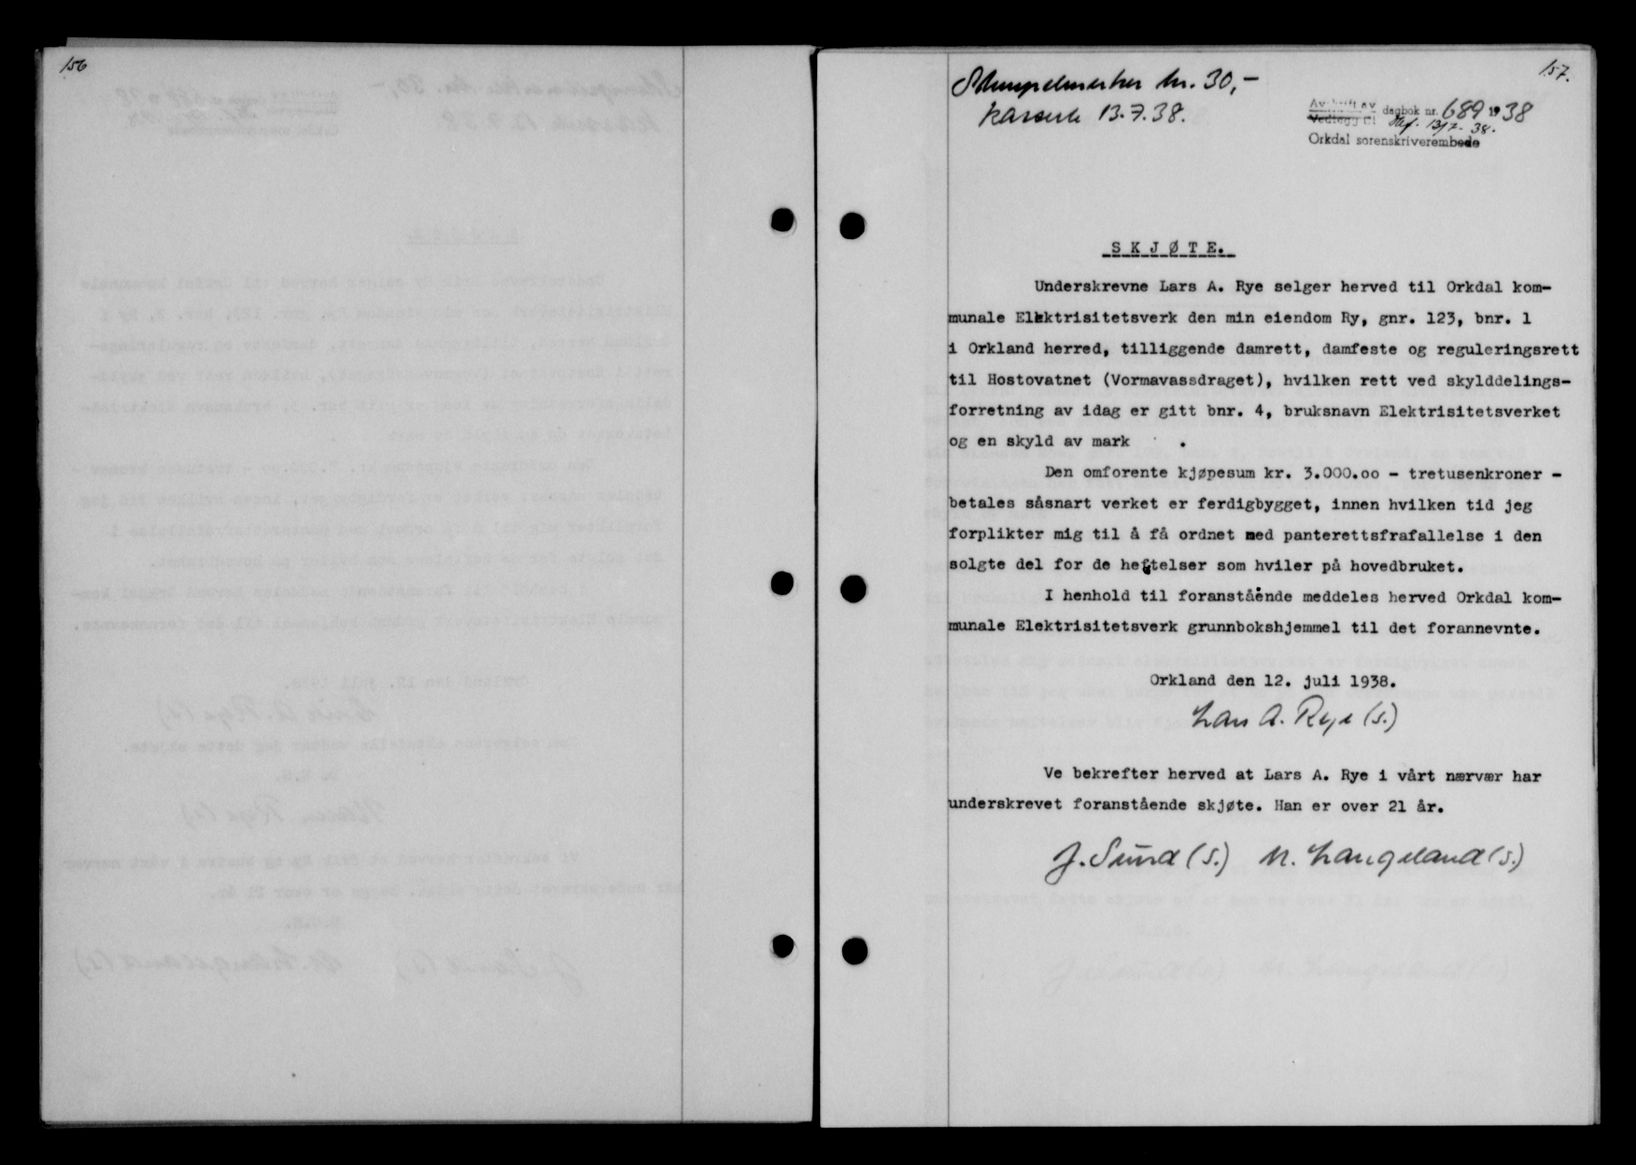 156
157.
Stempelmerker kr. 30,-
kasserte 13.7.38.
Avskrift av
Vedlegg til dagbok nr. 689 1938
Tingl. 13/7-38.
Orkdal sorenskriverembede
SKJØTE.
Underskrevne Lars A. Rye selger herved til Orkdal kom-
munale Elektrisitetsverk den min eiendom Ry, gnr. 123, bnr. 1
i Orkland herred, tilliggende damrett, damfeste og reguleringsrett
til Hostovatnet (Vormavassdraget), hvilken rett ved skylddelings-
forretning av idag er gitt bnr. 4, bruksnavn Elektrisitetsverket
og en skyld av mark .
Den omforente kjøpesum kr. 3.000.oo - tretusenkroner -
betales såsnart verket er ferdigbygget, innen hvilken tid jeg
forplikter mig til å få ordnet med panterettsfrafallelse i den
solgte del for de heftelser som hviler på hovedbruket.
I henhold til foranstående meddeles herved Orkdal kom-
munale Elektrisitetsverk grunnbokshjemmel til det forannevnte.
Orkland den 12. juli 1938.
Lars A. Rye (s.)
Ve bekrefter herved at Lars A. Rye i vårt nærvær har
underskrevet foranstående skjøte. Han er over 21 år.
J. Sund (s.) M. Langeland (s.)